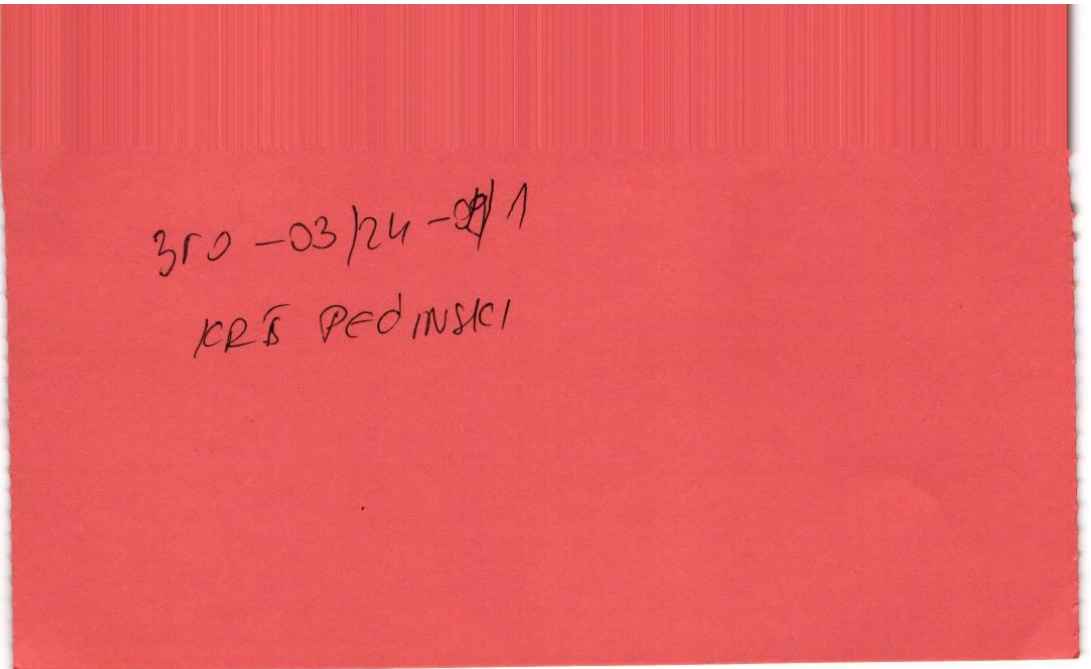 350-03/24-01/1
KRŠ PEĆINSKI